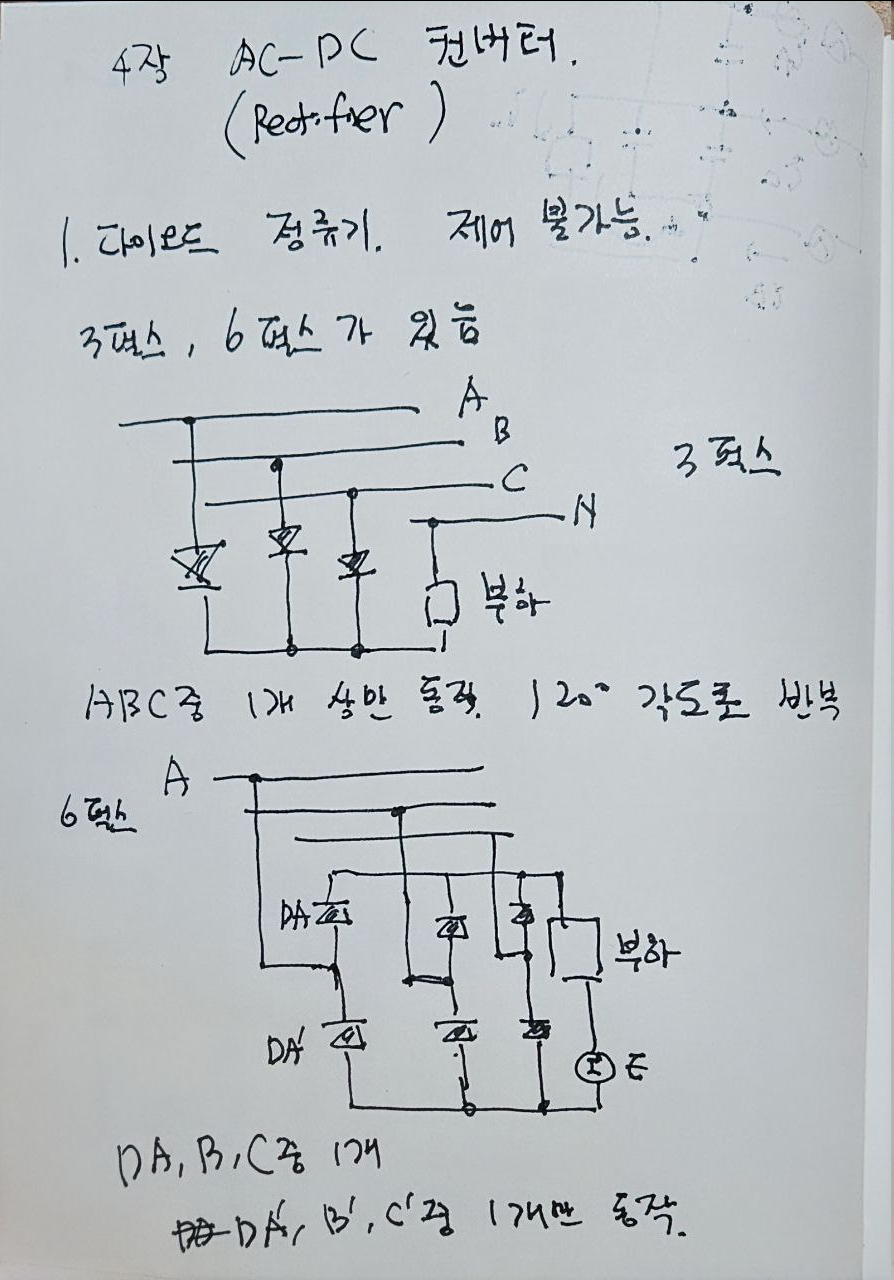 4장 AC-DC 컨버터.
(Rectifier)
1. 다이오드 정류기. 제어 불가능.
3펄스, 6펄스가 있음
A
B
C
N
3펄스
부하
ABC중 1개 상만 동작. 120° 각도로 반복
A
6펄스
DA
부하
DA'
E
DA, B, C중 1개
DA', B', C'중 1개만 동작.